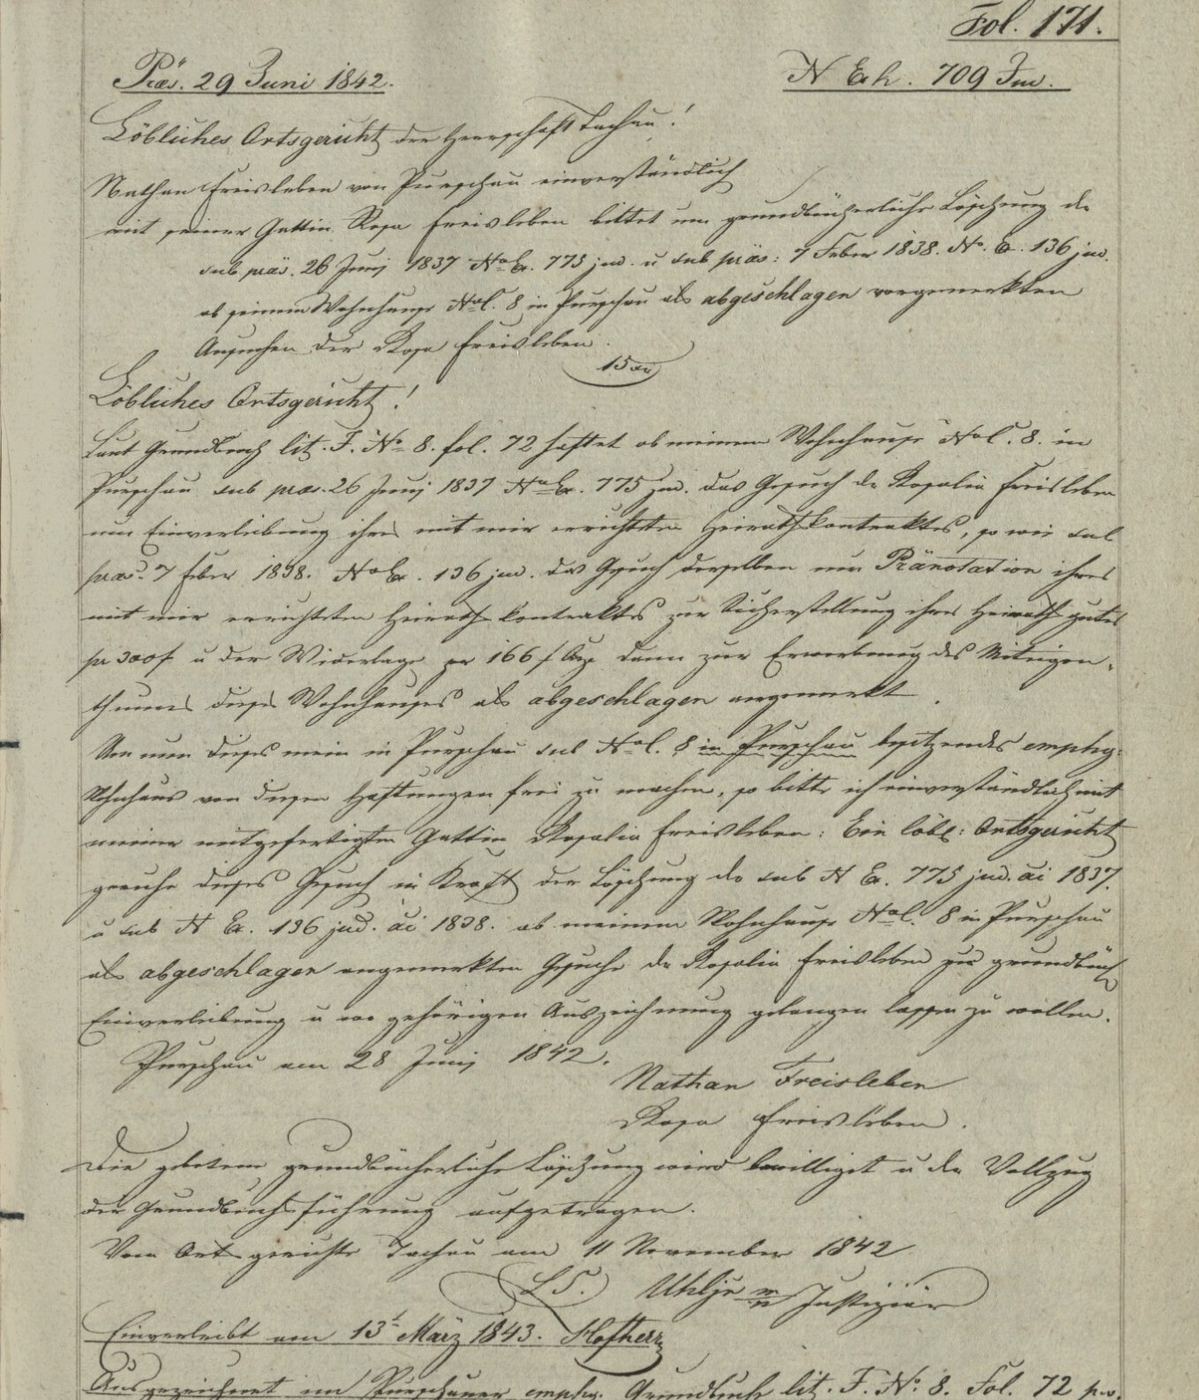 Fol. 171.
Präs. 29 Juni 1842.
N Exh. 709 Jud.
Löbliches Ortsgericht der Herrschaft Tachau!
Nathan Freisleben von Purschau einverständlich
mit seiner Gattin Rosa Freisleben bittet um grundbücherliche Löschung der
sub präs. 26 Junj 1837 No E. 775 jud. u sub präs: 7 Feber 1838. No. E. 136 jud.
ob seinem Wohnhause No C. 8 in Purschau als abgeschlagen vorgemerkten
Ansuchen der Rosa Freisleben.
15 xr
Löbliches Ortsgericht!
Laut Grundbuch lit. F. No 8. fol. 72 haftet ob meinem Wohnhause No C. 8. in
Purschau sub praes. 26 Junj 1837 No E. 775 jud. das Gesuch der Rosalia Freisleben
um Einverleibung ihres mit mir errichteten Heirathskontraktes, so wie sub
praes. 7 Feber 1838. No E. 136 jud. das Gesuch derselben um Pränotation ihres
mit mir errichteten Heirathskontraktes zur Sicherstellung ihres Heirathsgutes
pr 300 f u der Widerlage pr 166 f dann zur Erwerbung des Miteigen-
thumes dieses Wohnhauses als abgeschlagen angemerkt.
Um nun dieses mein in Purschau sub No C. 8 in Purschau besitzendes emphy:
Wohnhaus von diesen Haftungen frei zu machen, so bitte ich einverständlich mit
meiner mitgefertigten Gattin Rosalia Freisleben: Ein löbl: Ortsgericht
geruhe dieses Gesuch in Kraft der Löschung der sub N E. 775 jud. ai 1837.
u sub N E. 136 jud. ai 1838. ob meinem Wohnhause No C. 8 in Purschau
als abgeschlagen angemerkten Gesuche der Rosalia Freisleben zur grundbüch
Einverleibung u wo gehörigen Auszeichnung gelangen lassen zu wollen.
Purschau am 28 Junj 1842.
Nathan Freisleben
Rosa Freisleben.
Die gebetene grundbücherliche Löschung wird bewilliget u der Vollzug
der Grundbuchsführung aufgetragen.
Vom Ortsgerichte Tachau am 11 November 1842
L.S. Uhlje Justiziär
Einverleibt am 13t März 1843. Hofherr
Ausgezeichnet im Purschauer emphy. Grundbuch lit. F. No. 8. Fol. 72